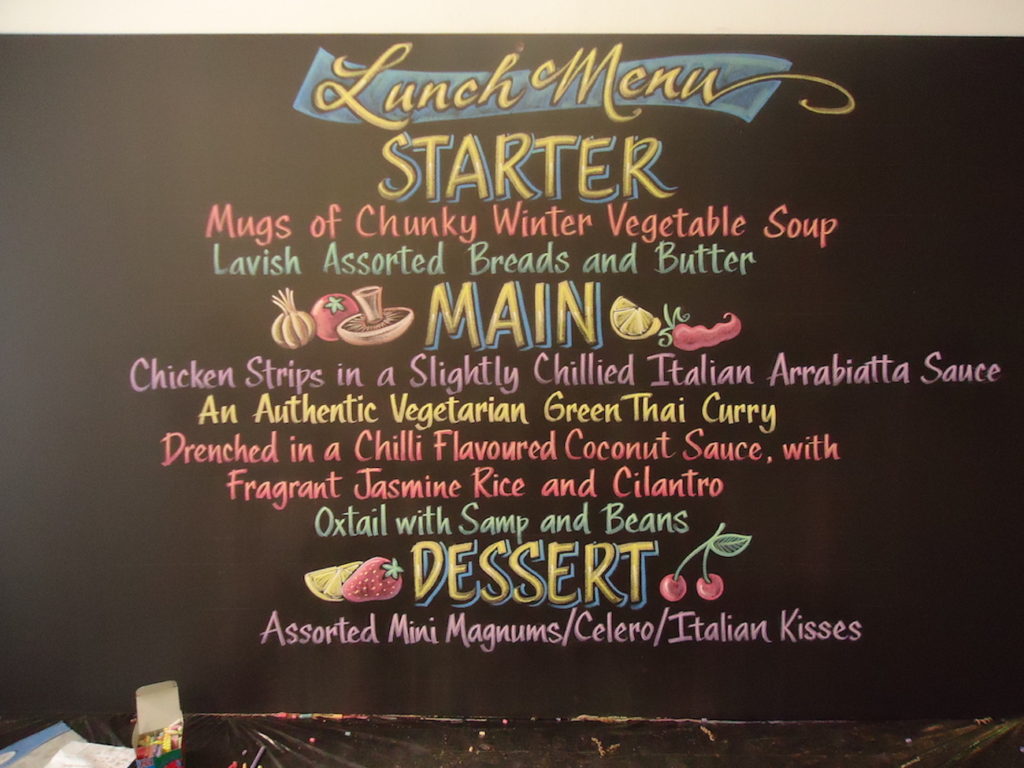 Lunch Menu
STARTER
Mugs of Chunky Winter Vegetable Soup
Lavish Assorted Breads and Butter
MAIN
Chicken Strips in a Slightly Chillied Italian Arrabiatta Sauce
An Authentic Vegetarian Green Thai Curry
Drenched in a Chilli Flavoured Coconut Sauce, with
Fragrant Jasmine Rice and Cilantro
Oxtail with Samp and Beans
DESSERT
Assorted Mini Magnums/Celero/Italian Kisses